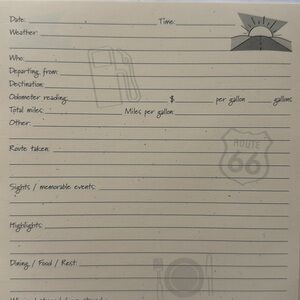 Date: Time:
Weather:
Who:
Departing from:
Destination:
Odometer reading: $ per gallon gallons
Total miles: Miles per gallon:
Other:
Route taken:
ROUTE
66
Sights / memorable events:
Highlights:
Dining / Food / Rest: